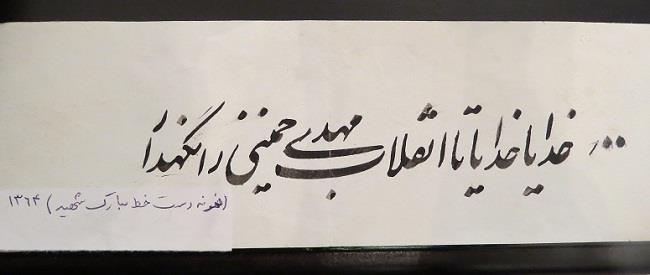 ... خدایا خدایا تا انقلاب مهدی خمینی را نگهدار
(نمونه دست خط مبارک شهید) ۱۳۶۴